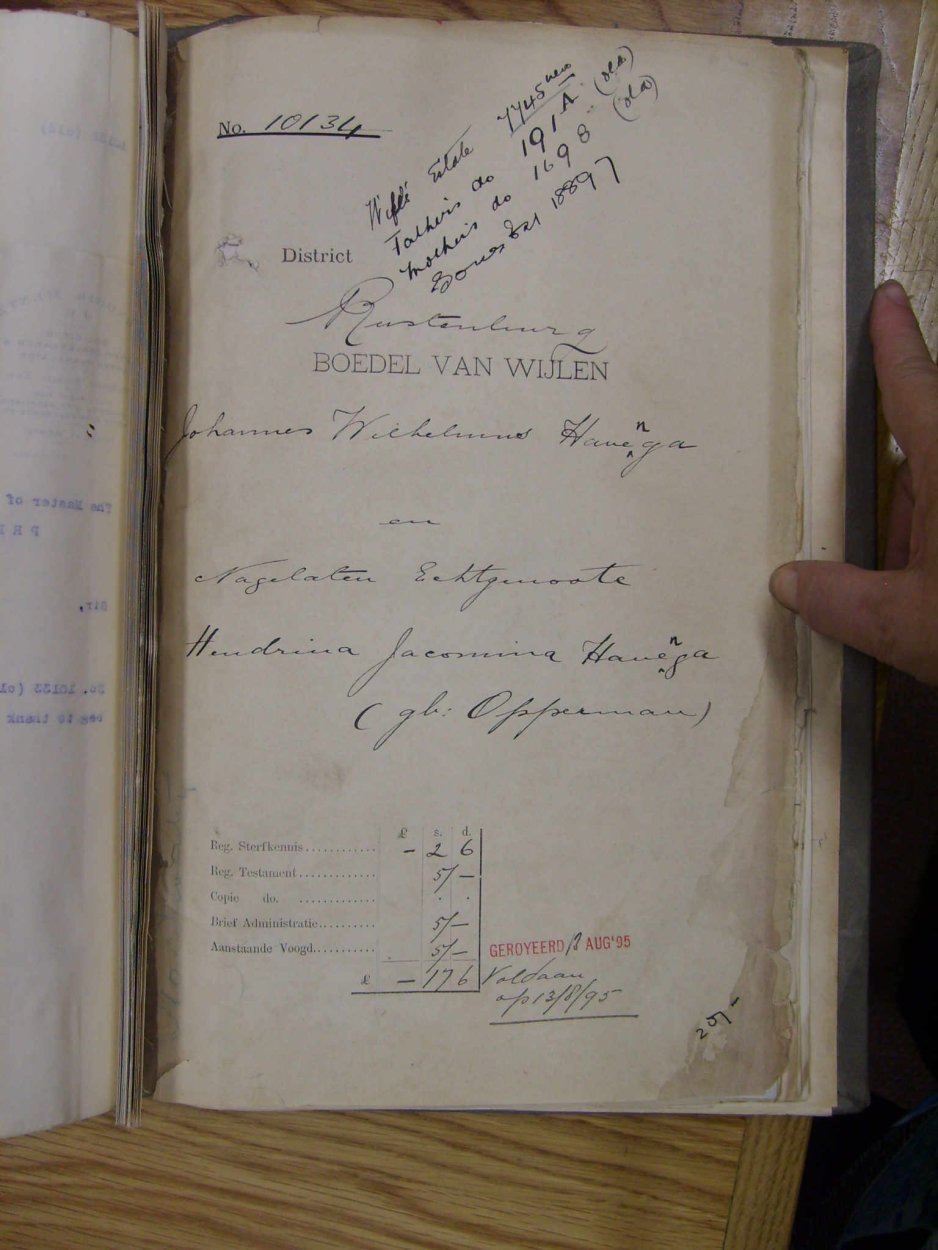 No. 10134
Wife's Estate 7745 new
Father's do 191 A (old)
Mother's do 1698 (old)
18897
District
Rustenburg
BOEDEL VAN WIJLEN
Johannes Wilhelmus Havenga
en
Nagelaten Echtgenoote
Hendrina Jacomina Havenga
(gb: Opperman)
£ s. d.
Reg. Sterfkennis............ – 2 6
Reg. Testament............. 5/–
Copie do. ............. . .
Brief Administratie.......... 5/–
Aanstaande Voogd.......... 5/–
£ – 17 6
GEROYEERD 13 AUG'95
Voldaan
op 13/8/95
25/-
The Master of
Sir,
beg to thank